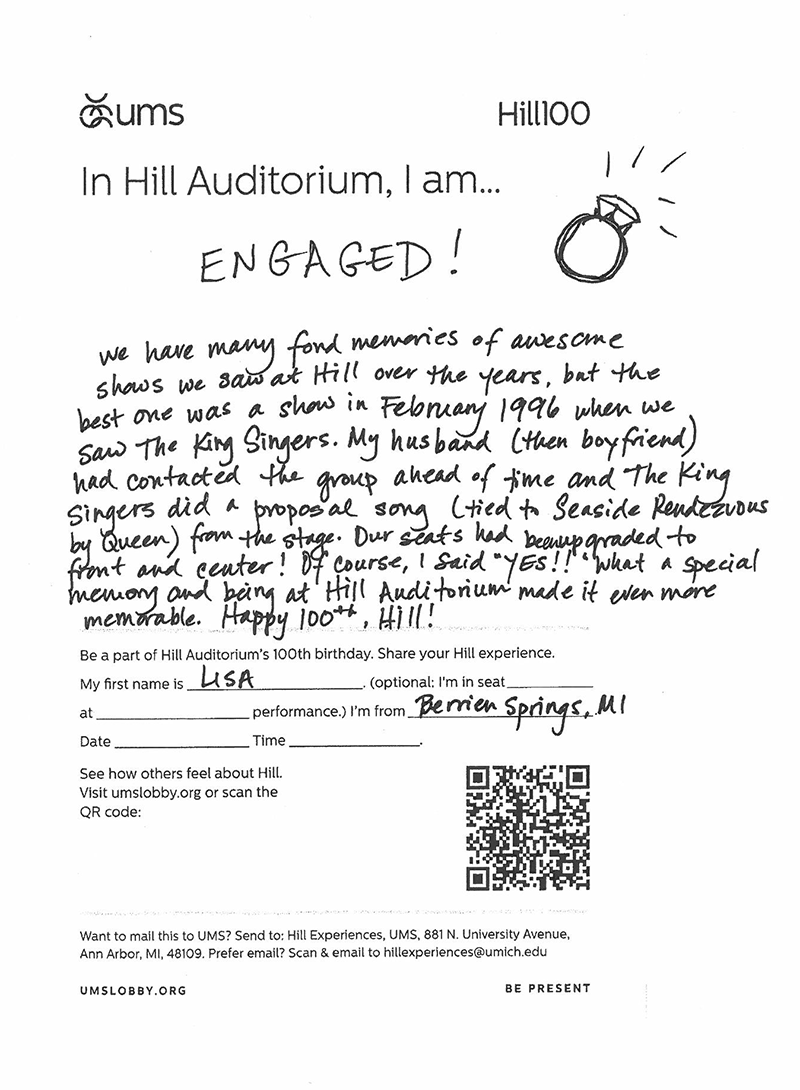 ums
Hill100
In Hill Auditorium, I am...
ENGAGED!
We have many fond memories of awesome
shows we saw at Hill over the years, but the
best one was a show in February 1996 when we
saw The King Singers. My husband (then boyfriend)
had contacted the group ahead of time and The King
Singers did a proposal song (tied to Seaside Rendezvous
by Queen) from the stage. Our seats had been upgraded to
front and center! Of course, I said "YES!!" What a special
memory and being at Hill Auditorium made it even more
memorable. Happy 100th, Hill!
Be a part of Hill Auditorium's 100th birthday. Share your Hill experience.
My first name is LISA. (optional: I'm in seat
at performance.) I'm from Berrien Springs, MI
Date Time .
See how others feel about Hill.
Visit umslobby.org or scan the
QR code:
Want to mail this to UMS? Send to: Hill Experiences, UMS, 881 N. University Avenue,
Ann Arbor, MI, 48109. Prefer email? Scan & email to hillexperiences@umich.edu
UMSLOBBY.ORG
BE PRESENT